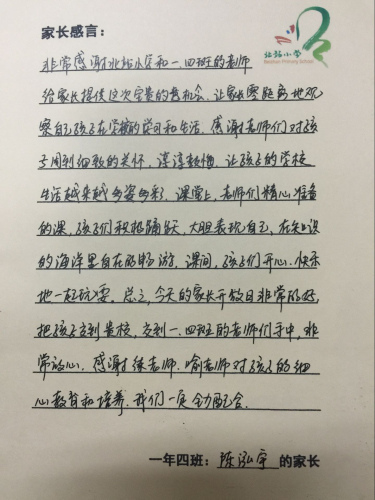 北站小学
Beizhan Primary School
家长感言：
非常感谢北站小学和一.四班的老师
给家长提供这次宝贵的机会.让家长零距离地观
察自己孩子在学校的学习和生活.感谢老师们对孩
子周到细致的关怀.谆谆教悔.让孩子的学校
生活越来越多姿多彩.课堂上.老师们精心准备
的课.孩子们积极踊跃.大胆表现自己,在知识
的海洋里自在的畅游.课间,孩子们开心.快乐
地一起玩耍.总之,今天的家长开放日非常的好,
把孩子交到贵校,交到一.四班的老师们手中,非
常放心.感谢徐老师.喻老师对孩子的细
心教育和培养.我们一定全力配合.
一年四班：陈泓宇 的家长